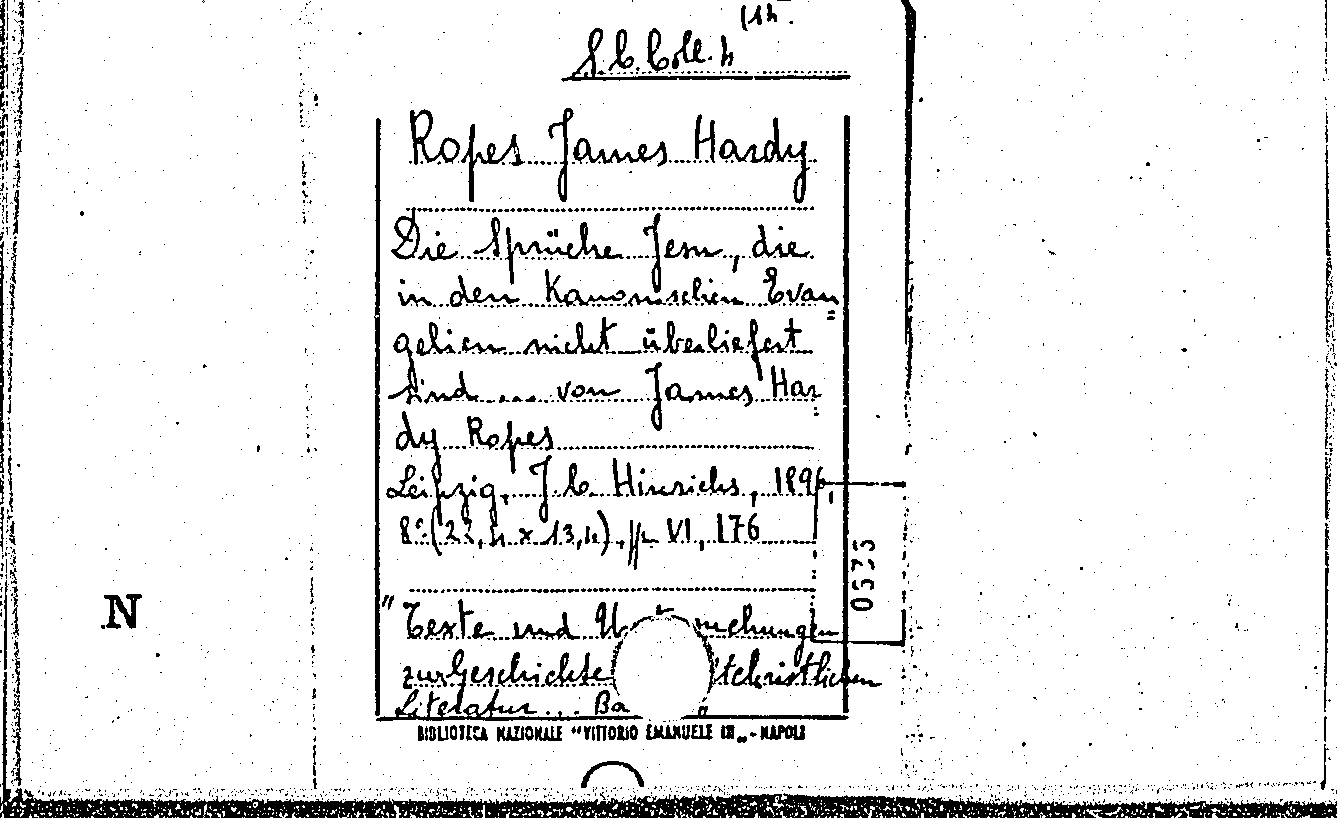 S.C. Coll. h
Ropes James Hardy
Die Sprüche Jesu, die
in den Kanonischen Evan=
gelien nicht überliefert
sind ... von James Har
dy Ropes
Leipzig, J. C. Hinrichs, 1896,
8° (22,4 x 13,4), pp VI, 176
0535
N
"Texte und
zur Geschichte
Literatur ... Ba
BIBLIOTECA NAZIONALE "VITTORIO EMANUELE III„ - NAPOLI